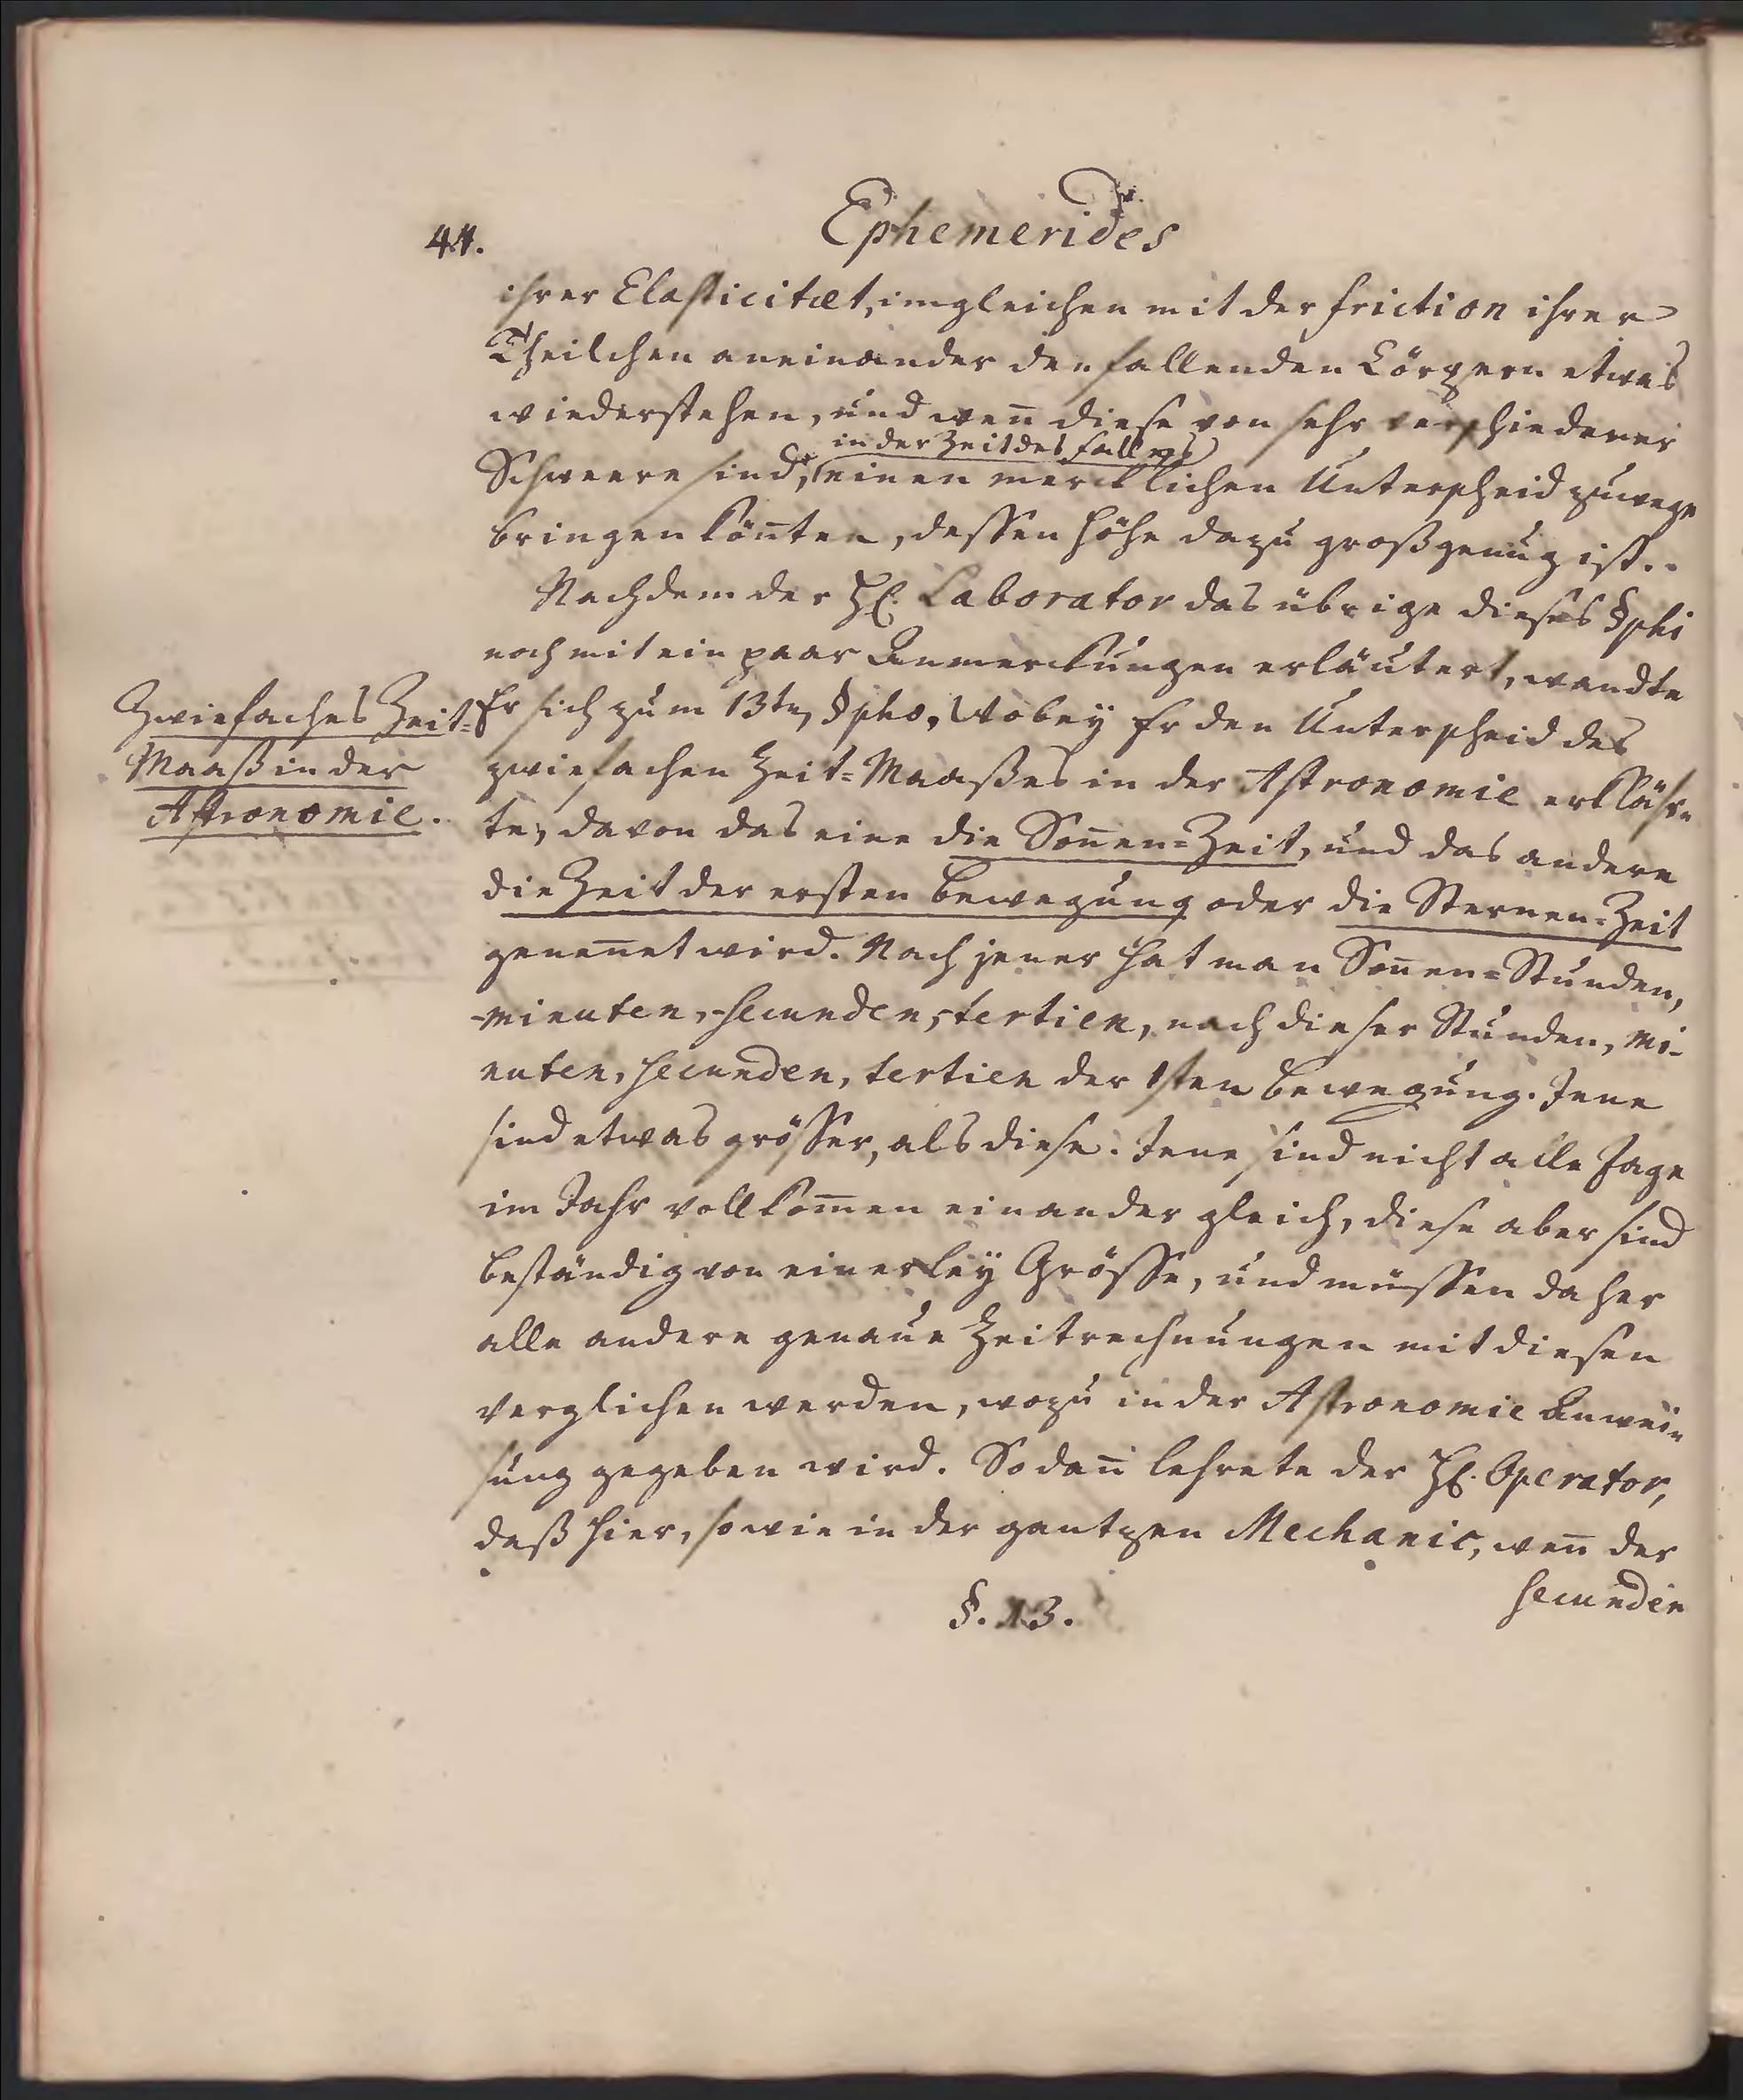 44.
Ephemerides
ihrer Elasticitæt, imgleichen mit der friction ihrer
Theilchen aneinander den fallenden Cörpern etwas
wiederstehen, und weñ diese von sehr verschiedener
in der Zeit des Falles
Schweere sind, einen mercklichen Unterscheid zuwege
bringen köñten, dessen Höhe dazu groß genug ist.
Nachdem der H. Laborator das übrige dieses §phi
noch mit ein paar Anmerckungen erläutert, wandte
Zwiefaches Zeit=
Maaß in der
Astronomie.
Er sich zum 13ten §pho, Wobey Er den Unterscheid des
zwiefachen Zeit=Maaßes in der Astronomie erklähr=
te, davon das eine die Soñen=Zeit, und das andere
die Zeit der ersten Bewegung oder die Sternen=Zeit
geneñet wird. Nach jener hat man Soñen=Stunden,
-minuten, -secunden, -tertien, nach dieser Stunden, mi-
nuten, secunden, tertien der 1sten Bewegung. Jene
sind etwas grösser, als diese. Jene sind nicht alle Tage
im Jahr vollkom̃en einander gleich, diese aber sind
beständig von einerley Grösse, und müssen daher
alle andere genaue Zeitrechnungen mit diesen
verglichen werden, wozu in der Astronomie Anwei=
sung gegeben wird. Sodañ lehrete der H. Operator,
daß hier, so wie in der gantzen Mechanic, weñ der
secunden
§. 13.